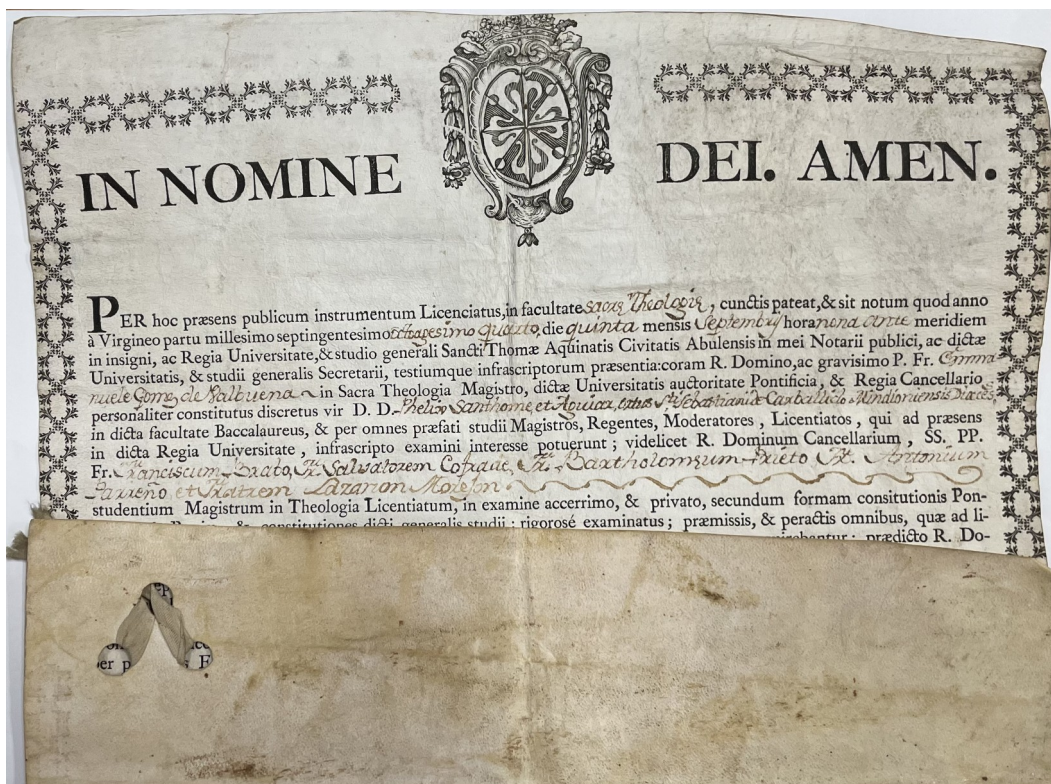 IN NOMINE DEI. AMEN.
PER hoc præsens publicum instrumentum Licenciatus, in facultate sacræ Theologiæ, cunctis pateat, & sit notum quod anno
à Virgineo partu millesimo septingentesimo octagesimo quarto, die quinta mensis Septembris hora nona ante meridiem
in insigni, ac Regia Universitate, & studio generali Sancti Thomæ Aquinatis Civitatis Abulensis in mei Notarii publici, ac dictæ
Universitatis, & studii generalis Secretarii, testiumque infrascriptorum præsentia: coram R. Domino, ac gravisimo P. Fr. Emma
nuele Gomez de Balbuena in Sacra Theologia Magistro, dictæ Universitatis auctoritate Pontificia, & Regia Cancellario
personaliter constitutus discretus vir D. D. Phelix Santhome et Aguiar, Sti. Sebastiani de Carballido Mindioniensis Dioeces.
in dicta facultate Baccalaureus, & per omnes præfati studii Magistros, Regentes, Moderatores, Licentiatos, qui ad præsens
in dicta Regia Universitate, infrascripto examini interesse potuerunt; videlicet R. Dominum Cancellarium, SS. PP.
Fr. Franciscum Brato, Fr. Salvatorem Cofrane, Fr. Bartholomæum Prieto Fr. Antonium
Parreño, et Fratrem Lazarom
studentium Magistrum in Theologia Licentiatum, in examine accerrimo, & privato, secundum formam consitutionis Pon-
& constitutiones dicti generalis studii; rigorosé examinatus; præmissis, & peractis omnibus, quæ ad li-
prædicto R. Do-
er p
F